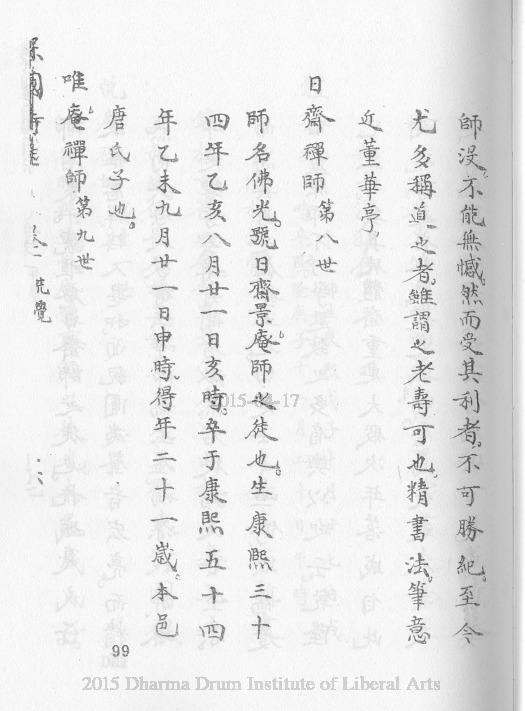 師沒。不能無憾。然而受其利者。不可勝紀。至今
尤多稱道之者。雖謂之老壽可也。精書法。筆意
近董華亭。
日齋禪師第八世
師名佛光。號日齋。景庵師之徒也。生康熙三十
四年乙亥八月廿一日亥時。卒于康熙五十四
年乙未九月廿一日申時。得年二十一歲。本邑
唐氏子也。
唯庵禪師第九世
梵覺
99
2015-04-17
2015 Dharma Drum Institute of Liberal Arts